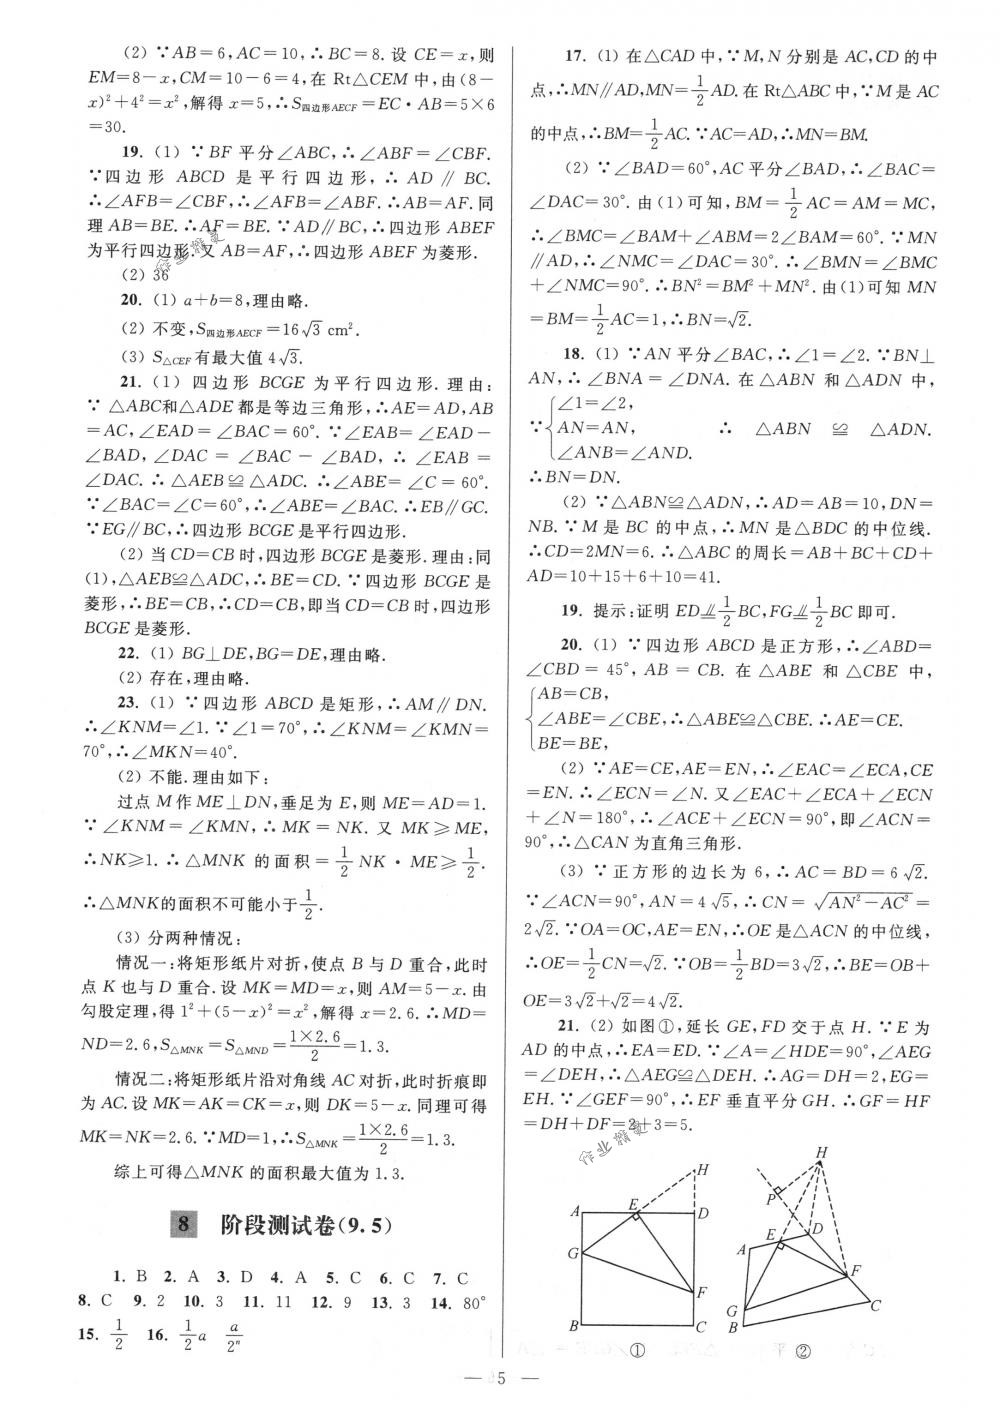 (2) ∵AB=6,AC=10,∴BC=8.设 CE=x,则
EM=8-x,CM=10-6=4,在 Rt△CEM 中,由(8-
x)²+4²=x²,解得 x=5,∴S四边形AECF=EC·AB=5×6
=30.
19. (1) ∵BF 平分∠ABC,∴∠ABF=∠CBF.
∵四边形 ABCD 是平行四边形,∴AD∥BC.
∴∠AFB=∠CBF,∴∠AFB=∠ABF.∴AB=AF.同
理 AB=BE.∴AF=BE.∵AD∥BC,∴四边形 ABEF
为平行四边形.又 AB=AF,∴四边形 ABEF 为菱形.
(2) 36
20. (1) a+b=8,理由略.
(2) 不变,S四边形AECF=16√3 cm².
(3) S△CEF有最大值 4√3.
21. (1) 四边形 BCGE 为平行四边形.理由:
∵ △ABC和△ADE都是等边三角形,∴AE=AD,AB
=AC,∠EAD=∠BAC=60°.∵∠EAB=∠EAD-
∠BAD,∠DAC=∠BAC-∠BAD,∴∠EAB=
∠DAC.∴△AEB≌△ADC.∴∠ABE=∠C=60°.
∵∠BAC=∠C=60°,∴∠ABE=∠BAC.∴EB∥GC.
∵EG∥BC,∴四边形 BCGE是平行四边形.
(2) 当CD=CB时,四边形BCGE是菱形.理由:同
(1),△AEB≌△ADC,∴BE=CD.∵四边形 BCGE 是
菱形,∴BE=CB,∴CD=CB,即当 CD=CB 时,四边形
BCGE是菱形.
22. (1) BG⊥DE,BG=DE,理由略.
(2) 存在,理由略.
23. (1) ∵四边形 ABCD 是矩形,∴AM∥DN.
∴∠KNM=∠1.∵∠1=70°,∴∠KNM=∠KMN=
70°,∴∠MKN=40°.
(2) 不能.理由如下:
过点 M作ME⊥DN,垂足为 E,则 ME=AD=1.
∵∠KNM=∠KMN,∴MK=NK.又 MK≥ME,
∴NK≥1.∴△MNK 的面积=1/2 NK·ME≥1/2.
∴△MNK的面积不可能小于1/2.
(3) 分两种情况:
情况一:将矩形纸片对折,使点 B 与 D 重合,此时
点 K 也与 D 重合.设 MK=MD=x,则 AM=5-x.由
勾股定理,得 1²+(5-x)²=x²,解得 x=2.6.∴MD=
ND=2.6,S△MNK=S△MND=1×2.6/2=1.3.
情况二:将矩形纸片沿对角线 AC 对折,此时折痕即
为 AC.设 MK=AK=CK=x,则 DK=5-x.同理可得
MK=NK=2.6.∵MD=1,∴S△MNK=1×2.6/2=1.3.
综上可得△MNK 的面积最大值为 1.3.
8 阶段测试卷(9.5)
1. B 2. A 3. D 4. A 5. C 6. C 7. C
8. C 9. 2 10. 3 11. 11 12. 9 13. 3 14. 80°
15. 1/2 16. 1/2 a a/2ⁿ
17. (1) 在△CAD 中,∵M,N 分别是 AC,CD 的中
点,∴MN∥AD,MN=1/2 AD.在 Rt△ABC 中,∵M 是 AC
的中点,∴BM=1/2 AC.∵AC=AD,∴MN=BM.
(2) ∵∠BAD=60°,AC 平分∠BAD,∴∠BAC=
∠DAC=30°.由(1)可知,BM=1/2 AC=AM=MC,
∴∠BMC=∠BAM+∠ABM=2∠BAM=60°.∵MN
∥AD,∴∠NMC=∠DAC=30°.∴∠BMN=∠BMC
+∠NMC=90°.∴BN²=BM²+MN².由(1)可知 MN
=BM=1/2 AC=1,∴BN=√2.
18. (1) ∵AN 平分∠BAC,∴∠1=∠2.∵BN⊥
AN,∴∠BNA=∠DNA.在△ABN 和△ADN 中,
∠1=∠2,
∵ AN=AN, ∴ △ABN ≌ △ADN.
∠ANB=∠AND.
∴BN=DN.
(2) ∵△ABN≌△ADN,∴AD=AB=10,DN=
NB.∵M 是 BC 的中点,∴MN 是△BDC 的中位线.
∴CD=2MN=6.∴△ABC 的周长=AB+BC+CD+
AD=10+15+6+10=41.
19. 提示:证明 ED⊥∥1/2 BC,FG⊥∥1/2 BC即可.
20. (1) ∵四边形 ABCD 是正方形,∴∠ABD=
∠CBD=45°,AB=CB.在△ABE 和△CBE 中,
AB=CB,
∠ABE=∠CBE,∴△ABE≌△CBE.∴AE=CE.
BE=BE,
(2) ∵AE=CE,AE=EN,∴∠EAC=∠ECA,CE
=EN.∴∠ECN=∠N.又∠EAC+∠ECA+∠ECN
+∠N=180°,∴∠ACE+∠ECN=90°,即∠ACN=
90°,∴△CAN 为直角三角形.
(3) ∵正方形的边长为 6,∴AC=BD=6√2.
∵∠ACN=90°,AN=4√5,∴CN=√(AN²-AC²)=
2√2.∵OA=OC,AE=EN,∴OE是△ACN 的中位线,
∴OE=1/2 CN=√2.∵OB=1/2 BD=3√2,∴BE=OB+
OE=3√2+√2=4√2.
21. (2) 如图①,延长 GE,FD 交于点 H.∵E 为
AD 的中点,∴EA=ED.∵∠A=∠HDE=90°,∠AEG
=∠DEH,∴△AEG≌△DEH.∴AG=DH=2,EG=
EH.∵∠GEF=90°,∴EF 垂直平分 GH.∴GF=HF
=DH+DF=2+3=5.
A E D H G F B C ①
H P D E A F G B C ②
— 5 —
作业精灵
作业精灵